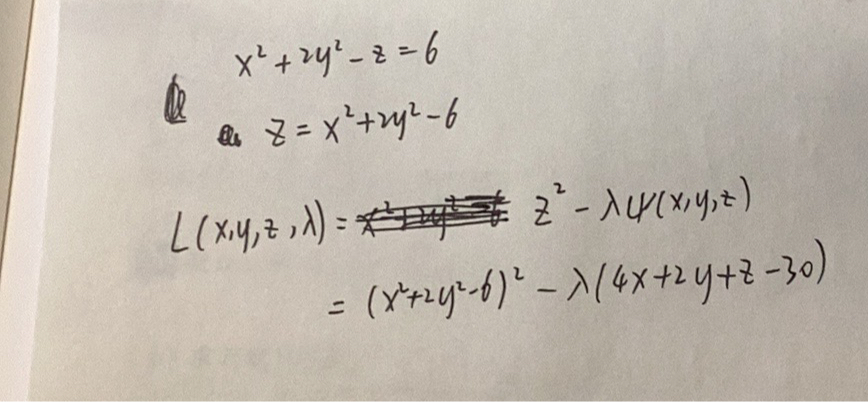 x² + 2y² - z = 6
z = x² + 2y² - 6
L(x,y,z,λ) = z² - λψ(x,y,z)
= (x²+2y²-6)² - λ(4x+2y+z-30)